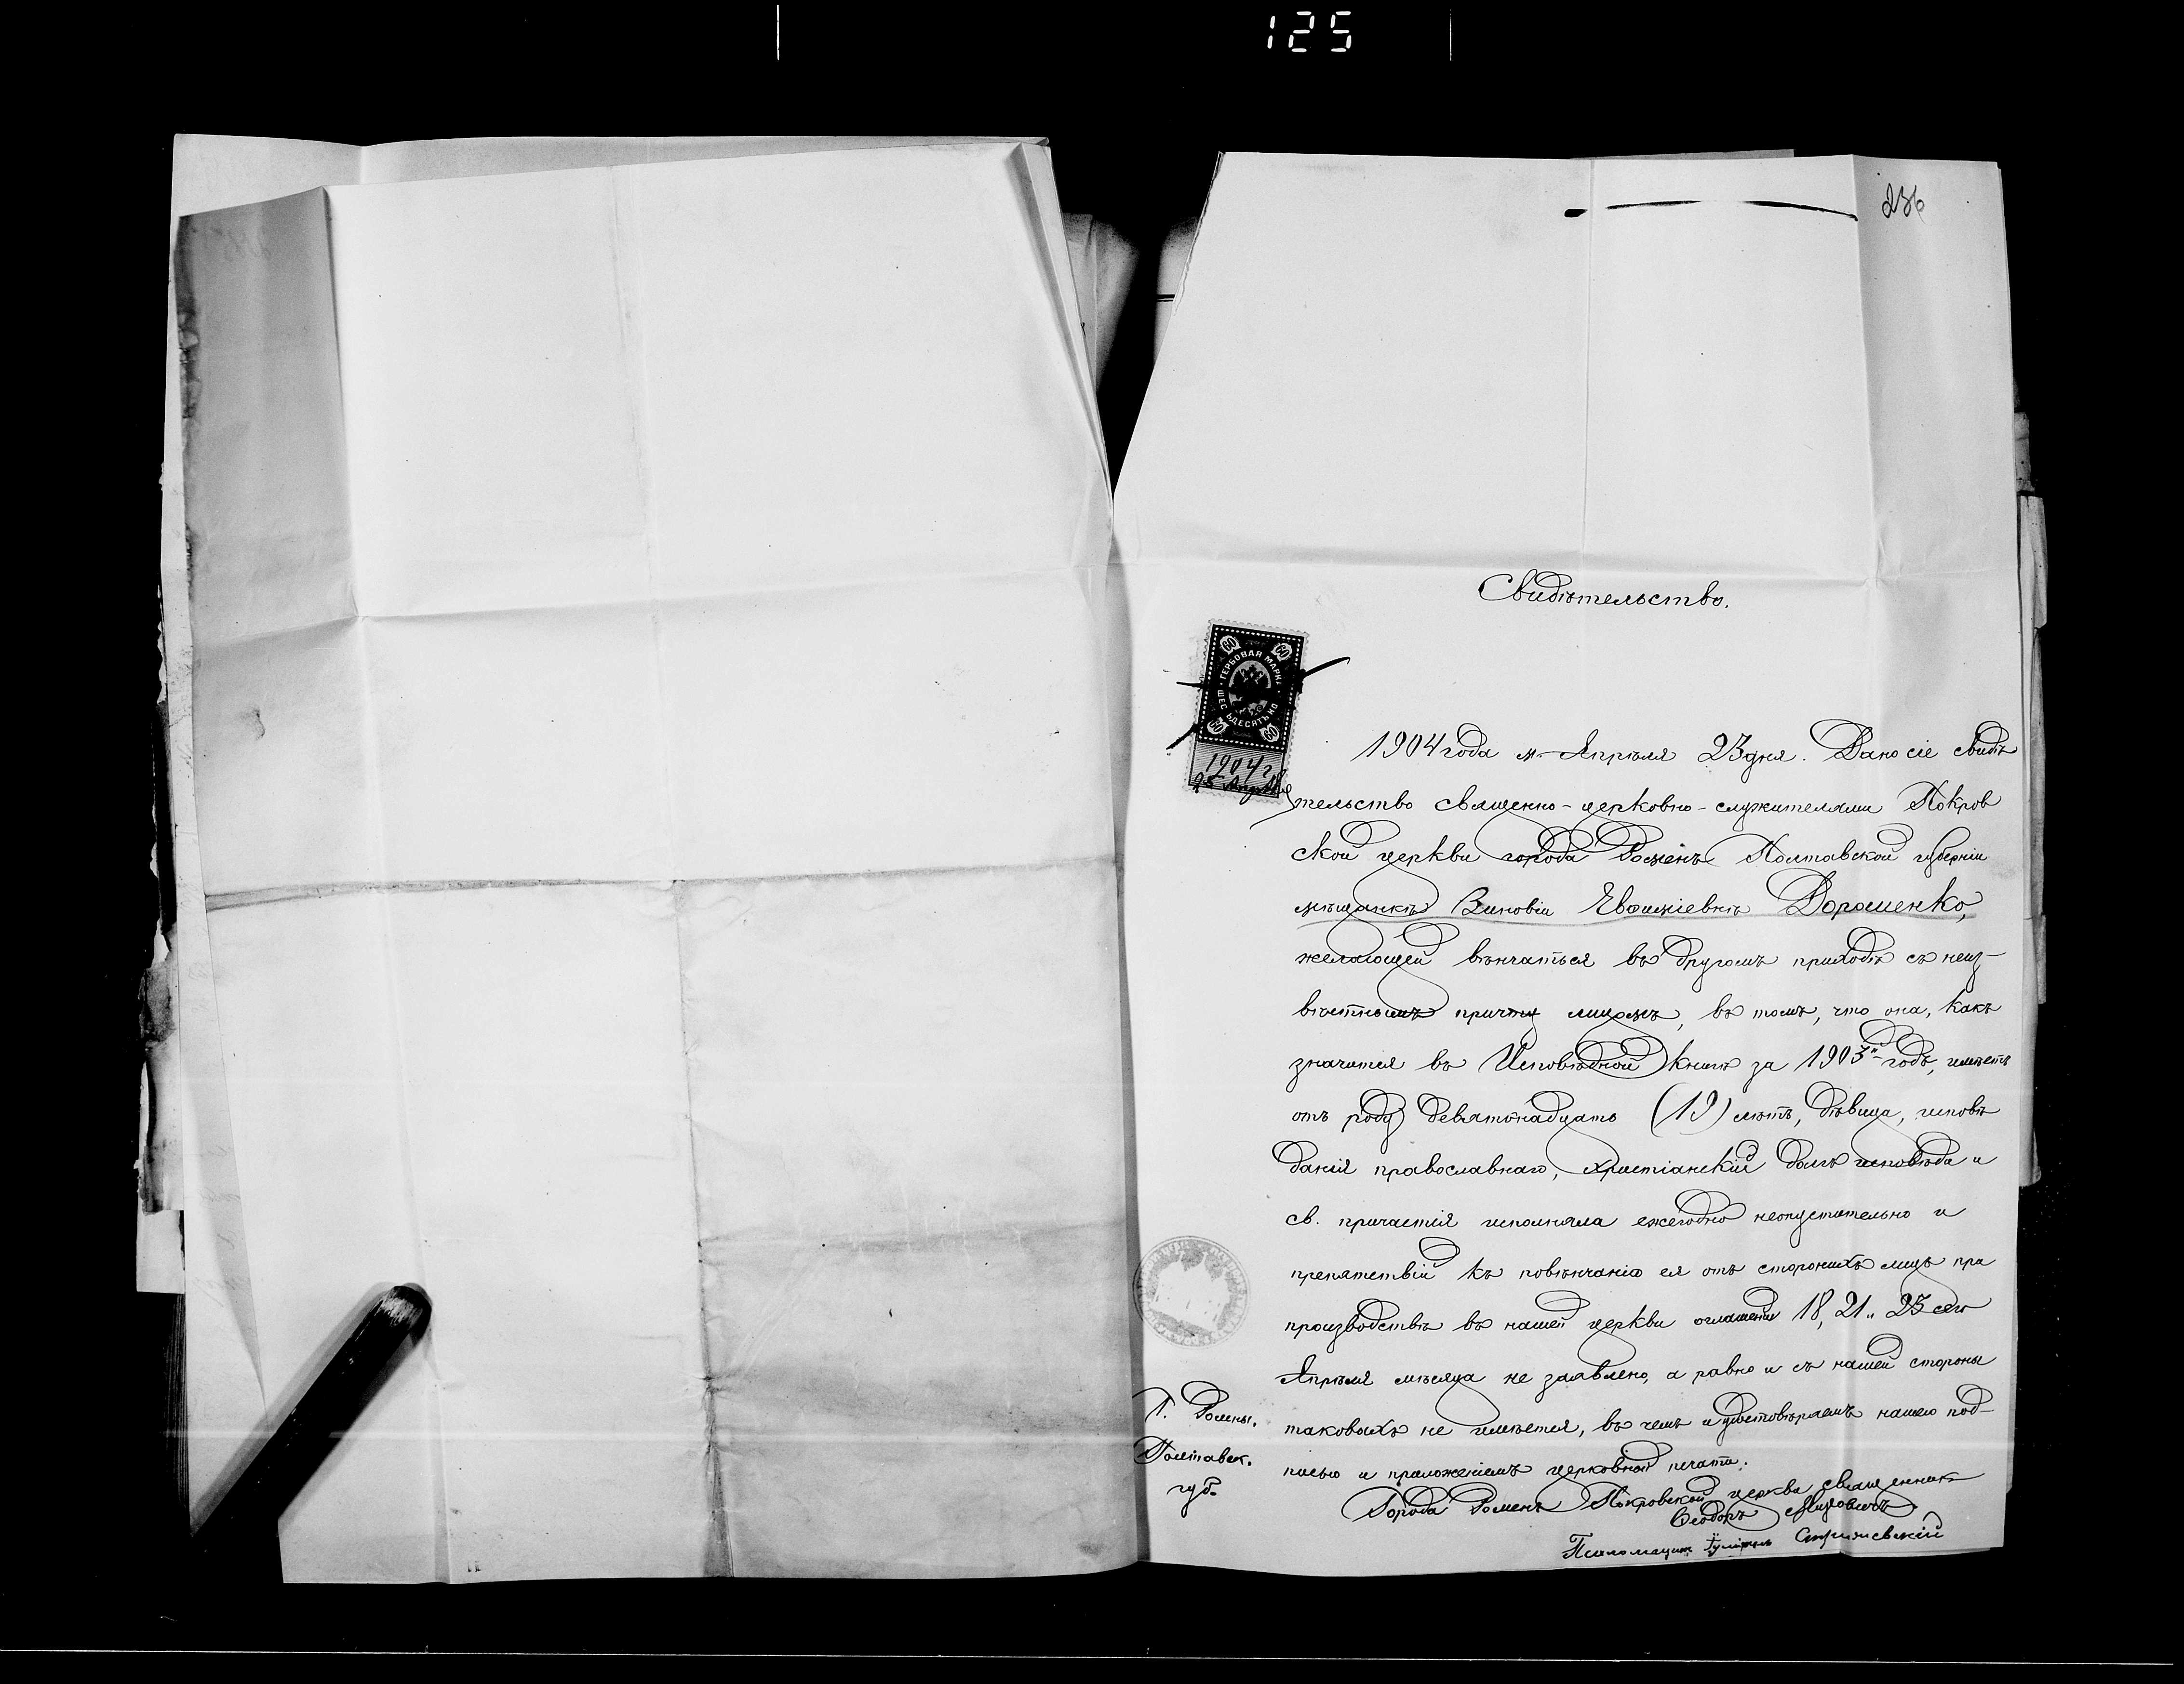 125
236
Свидѣтельство.
60 60
ГЕРБОВАЯ МАРКА
ШЕСТЬДЕСЯТЬ КО
60 60
1904 г.
23 Апрѣля
1904 года м. Апрѣля 23 дня. Дано сіе свидѣ
тельство священно-церковно-служителями Покров
ской церкви города Роменъ Полтавской губерніи
мѣщанкѣ Зиновіи Евфиміевнѣ Дорошенко,
желающей вѣнчаться въ другомъ приходѣ съ неиз-
вѣстнымъ причту лицомъ, въ томъ, что она, какъ
значится въ Исповѣдной книгѣ за 1903й годъ, имѣетъ
отъ роду девятнадцать (19) лѣтъ, дѣвица, исповѣ
данія православнаго, христіанскій долгъ исповѣди и
св. причастія исполняла ежегодно неопустительно и
препятствій къ повѣнчанію ея отъ стороннихъ лицъ при
производствѣ въ нашей церкви оглашеній 18, 21 и 23 сего
Апрѣля мѣсяца не заявлено, а равно и съ нашей стороны
таковыхъ не имѣется, въ чемъ и удостовѣряемъ нашею под-
писью и приложеніемъ церковной печати.
Г. Ромны.
Полтавск.
губ.
Города Роменъ Покровской церкви священникъ
Ѳеодоръ
Псаломщикъ Стрижевскій